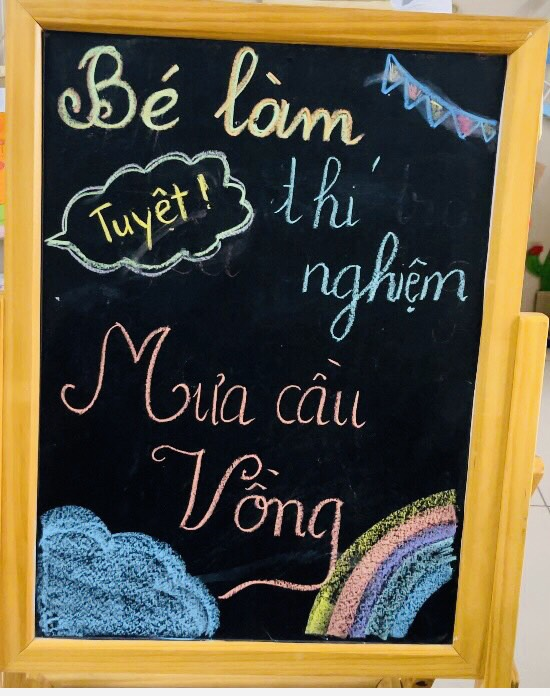 Bé làm
Tuyệt!
thí
nghiệm
Mưa cầu
Vồng